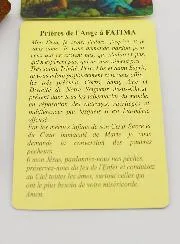 Prières de l'Ange à FATIMA
Mon Dieu, je crois, j'adore, j'espère et je
vous aime. Je vous demande pardon pour
ceux qui ne croient pas, qui n'adorent pas,
qui n'espèrent pas, qui ne vous aiment pas.
Très Sainte Trinité, Père, Fils et Saint Esprit,
je vous adore profondément et je vous offre
les très précieux Corps, Sang, Ame et
Divinité de Notre Seigneur Jésus-Christ
présent dans tous les tabernacles du monde,
en réparation des outrages, sacrilèges et
indifférences par lesquels il est Lui-même
offensé.
Par les mérites infinis de son Cœur Sacré et
du Cœur immaculé de Marie je vous
demande la conversion des pauvres
pécheurs.
O mon Jésus, pardonnez-nous nos péchés,
préservez-nous du feu de l'Enfer et conduisez
au Ciel toutes les âmes, surtout celles qui
ont le plus besoin de votre miséricorde.
Amen.